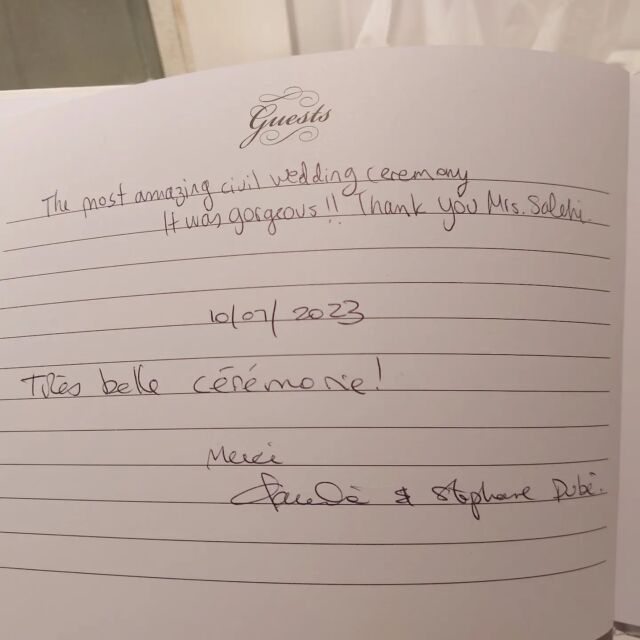 Guests
The most amazing civil wedding ceremony
It was gorgeous!! Thank you Mrs. Salehi.
10/07/2023
Très belle cérémonie!
Merci
& Stephane Dubé.